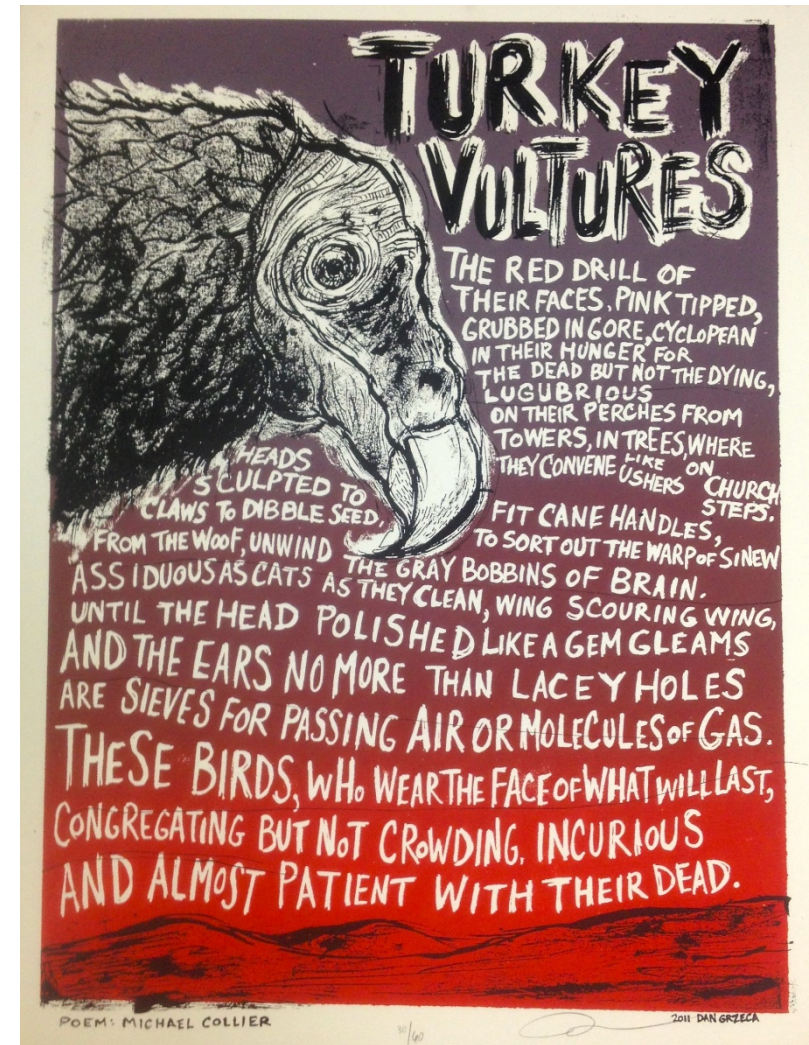 TURKEY
VULTURES
THE RED DRILL OF
THEIR FACES, PINK TIPPED,
GRUBBED IN GORE, CYCLOPEAN
IN THEIR HUNGER FOR
THE DEAD BUT NOT THE DYING,
LUGUBRIOUS
ON THEIR PERCHES FROM
TOWERS, IN TREES, WHERE
THEY CONVENE LIKE USHERS ON CHURCH STEPS.
HEADS
SCULPTED TO FIT CANE HANDLES,
CLAWS TO DIBBLE SEED, TO SORT OUT THE WARP OF SINEW
FROM THE WOOF, UNWIND THE GRAY BOBBINS OF BRAIN.
ASSIDUOUS AS CATS AS THEY CLEAN, WING SCOURING WING,
UNTIL THE HEAD POLISHED LIKE A GEM GLEAMS
AND THE EARS NO MORE THAN LACEY HOLES
ARE SIEVES FOR PASSING AIR OR MOLECULES OF GAS.
THESE BIRDS, WHO WEAR THE FACE OF WHAT WILL LAST,
CONGREGATING BUT NOT CROWDING, INCURIOUS
AND ALMOST PATIENT WITH THEIR DEAD.
POEM: MICHAEL COLLIER
2011 DAN GRZECA